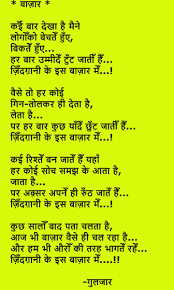 * बाज़ार *
कईं बार देखा है मैने
लोगोंको बेचतें हुँए,
बिकतें हुँए...
हर बार उम्मीदें टूँट जातीं हैं...
ज़िंदग़ानी के इस बाज़ार में...!
वैसे तो हर कोई
गिन-तोलकर ही देता है,
लेता है...
पर हर बार कुछ यांदें छूँट जातीं हैं...
ज़िंदग़ानी के इस बाज़ार में...!
कई रिश्तें वन जातें हैं यहाँ
हर कोई सोच समझ के आता है,
जाता है...
पर अक़्सर अपनें ही रुँठ जातें हैं...
ज़िंदग़ानी के इस बाज़ार में...!
कुछ सालों बाद पता चलता है,
आज भी बाज़ार वैसे ही चल रहा है...
और हम भी औरों की तरह भागतें रहें...
ज़िंदग़ानी के इस बाज़ार में....!!
-गुलजार